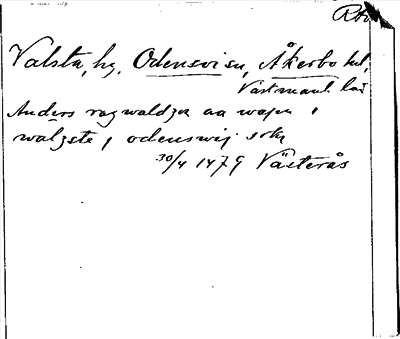 Valsta, hg, Odensvi sn, Åkerbo hd,
Västmanl. län
Anders ragwaldzson aa wapn i
walzste i odenswij sokn
30/4 1479 Västerås